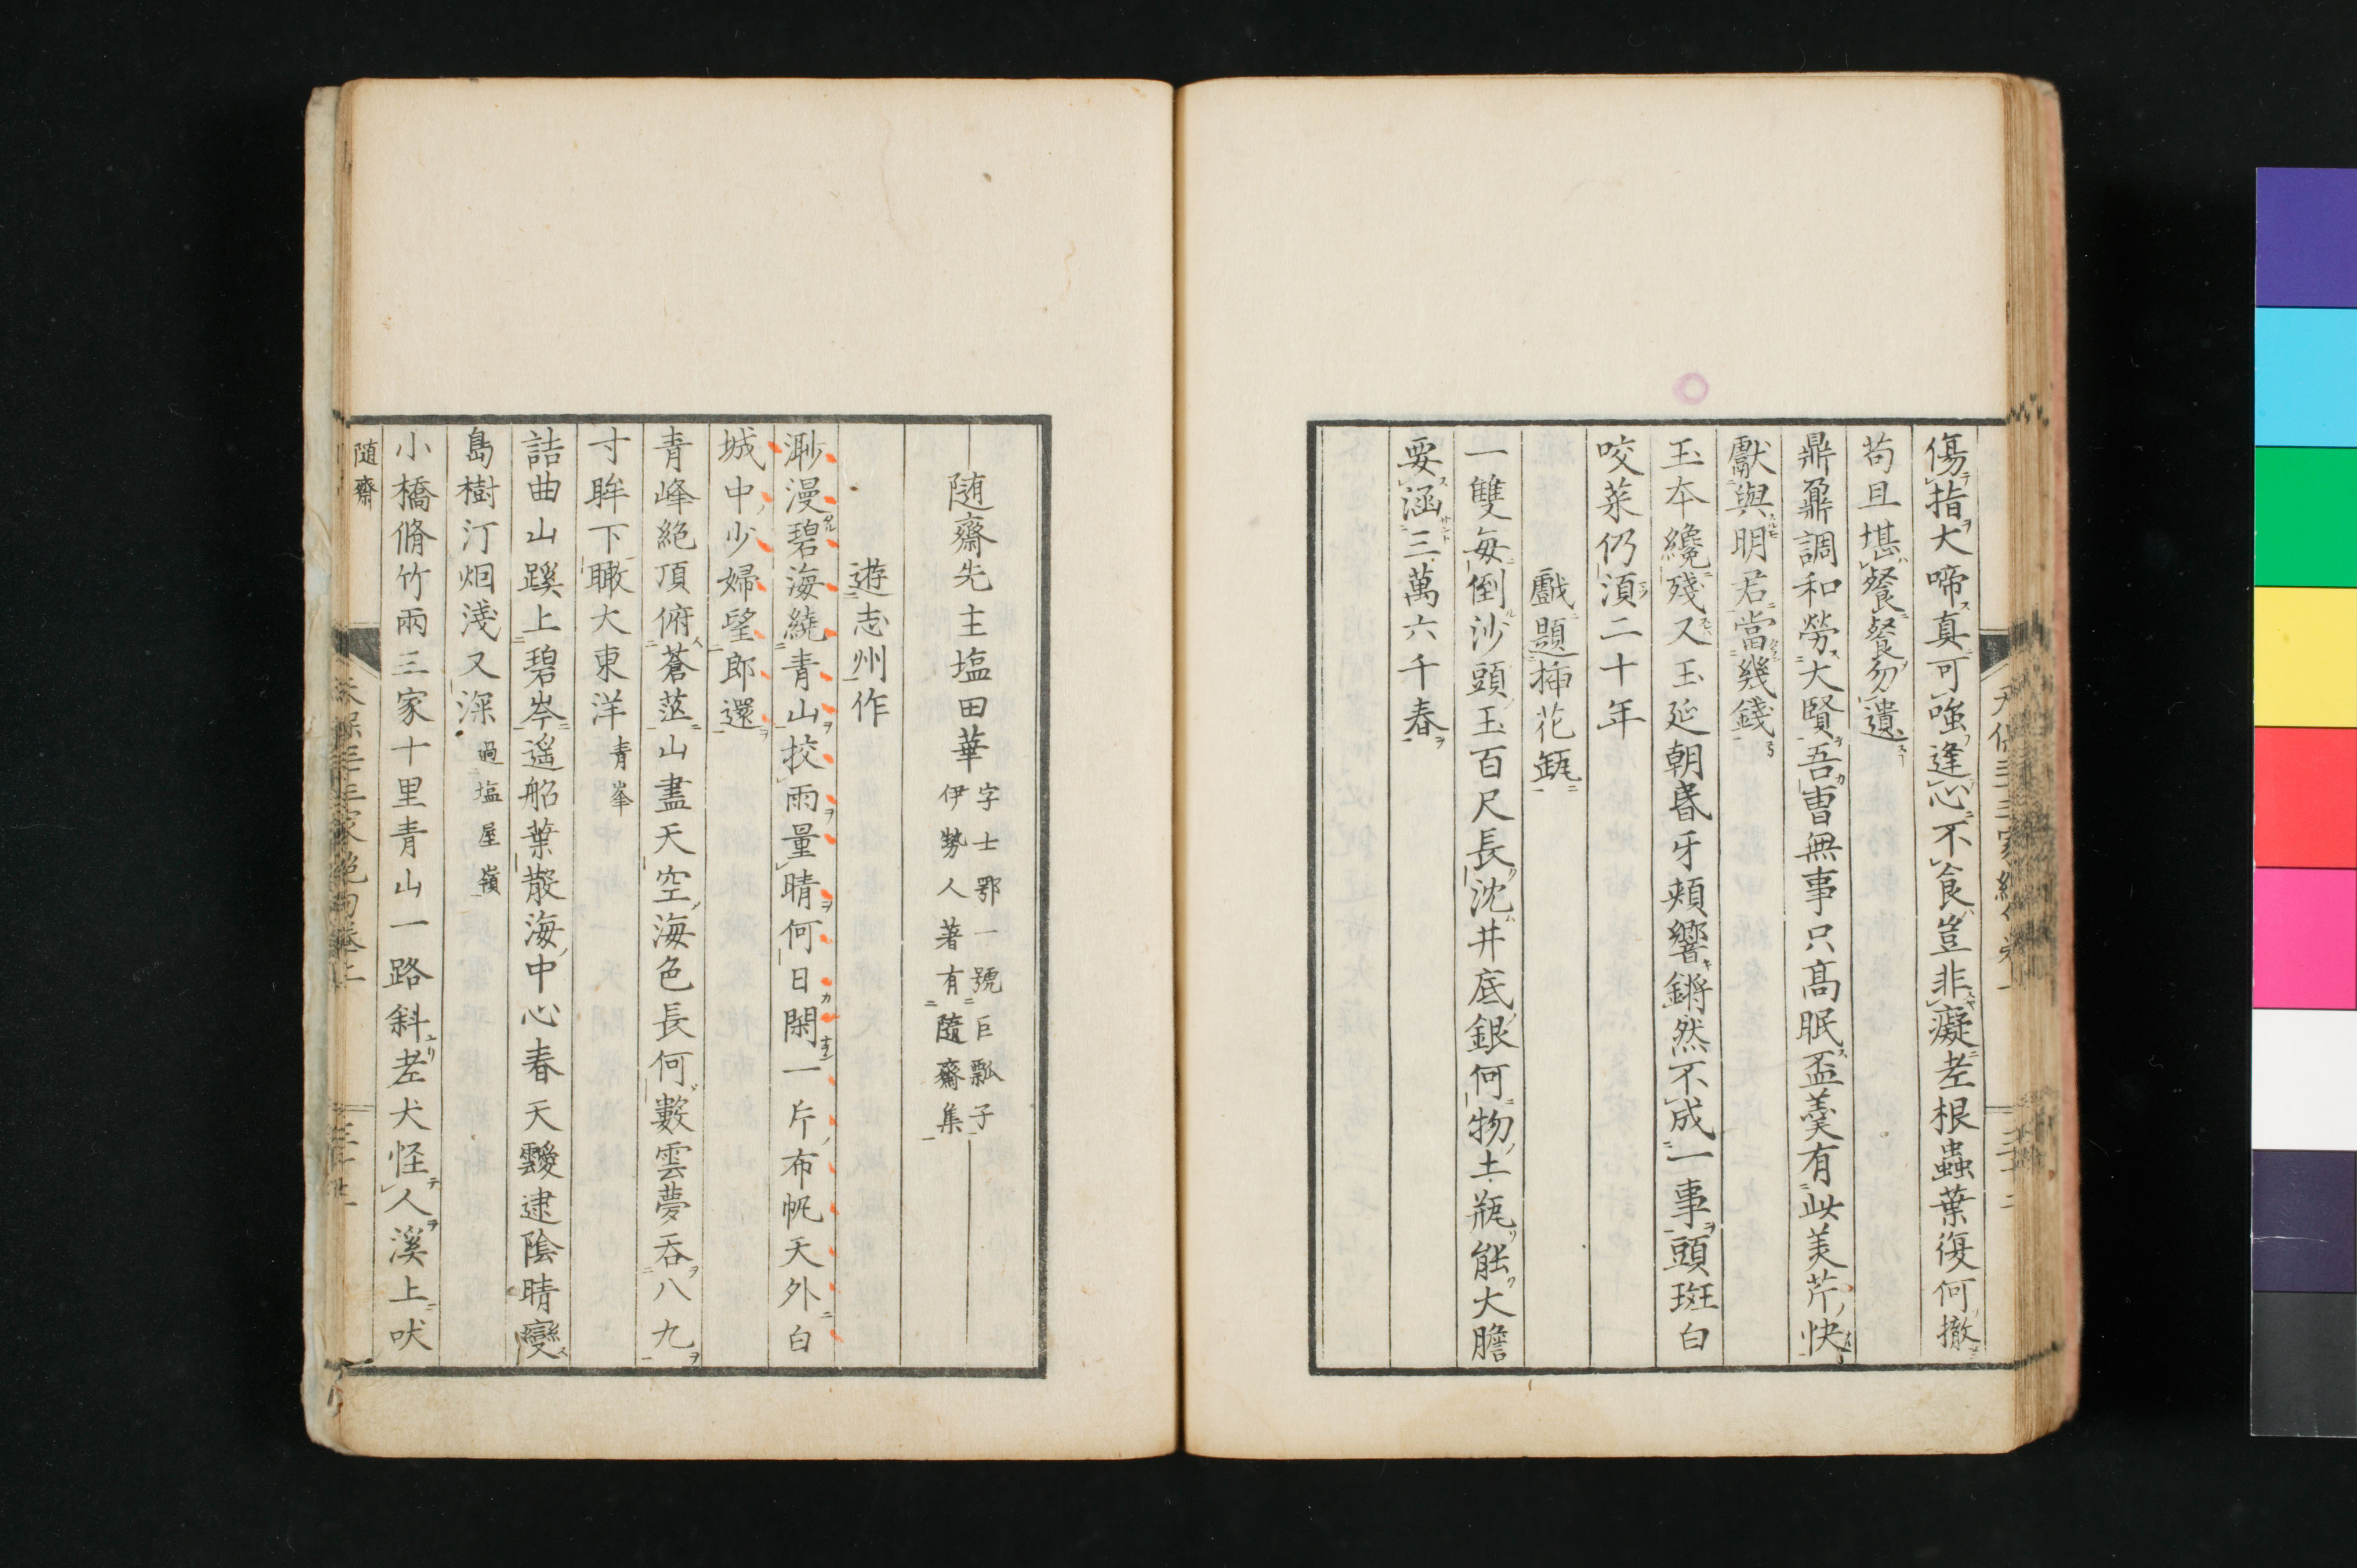 傷指大啼真可嗤逢心不食豈非癡老根蟲葉復何撤
苟且堪餐餐勿遺
鼎鼐調和勞大賢吾曹無事只高眠盃羹有此美芹快
獻與明君當幾錢
玉本纔殘又玉延朝昏牙頰響鏘然不成一事頭斑白
咬菜仍須二十年
戲題挿花瓶
一雙每倒沙頭玉百尺長沈井底銀何物土瓶能大膽
要涵三萬六千春
随齋先生塩田華
字士鄂一號巨瓢子
伊勢人著有隨齋集
遊志州作
渺漫碧海繞青山挍雨量晴何日閑一片布帆天外白
城中少婦望郎還
青峰絕頂俯蒼茫山盡天空海色長何數雲夢呑八九
寸眸下瞰大東洋青峯
詰曲山蹊上碧岑遥船葉散海中心春天靉逮陰晴變
島樹汀烟淺又深過塩屋嶺
小橋脩竹兩三家十里青山一路斜老犬怪人溪上吠
随齋